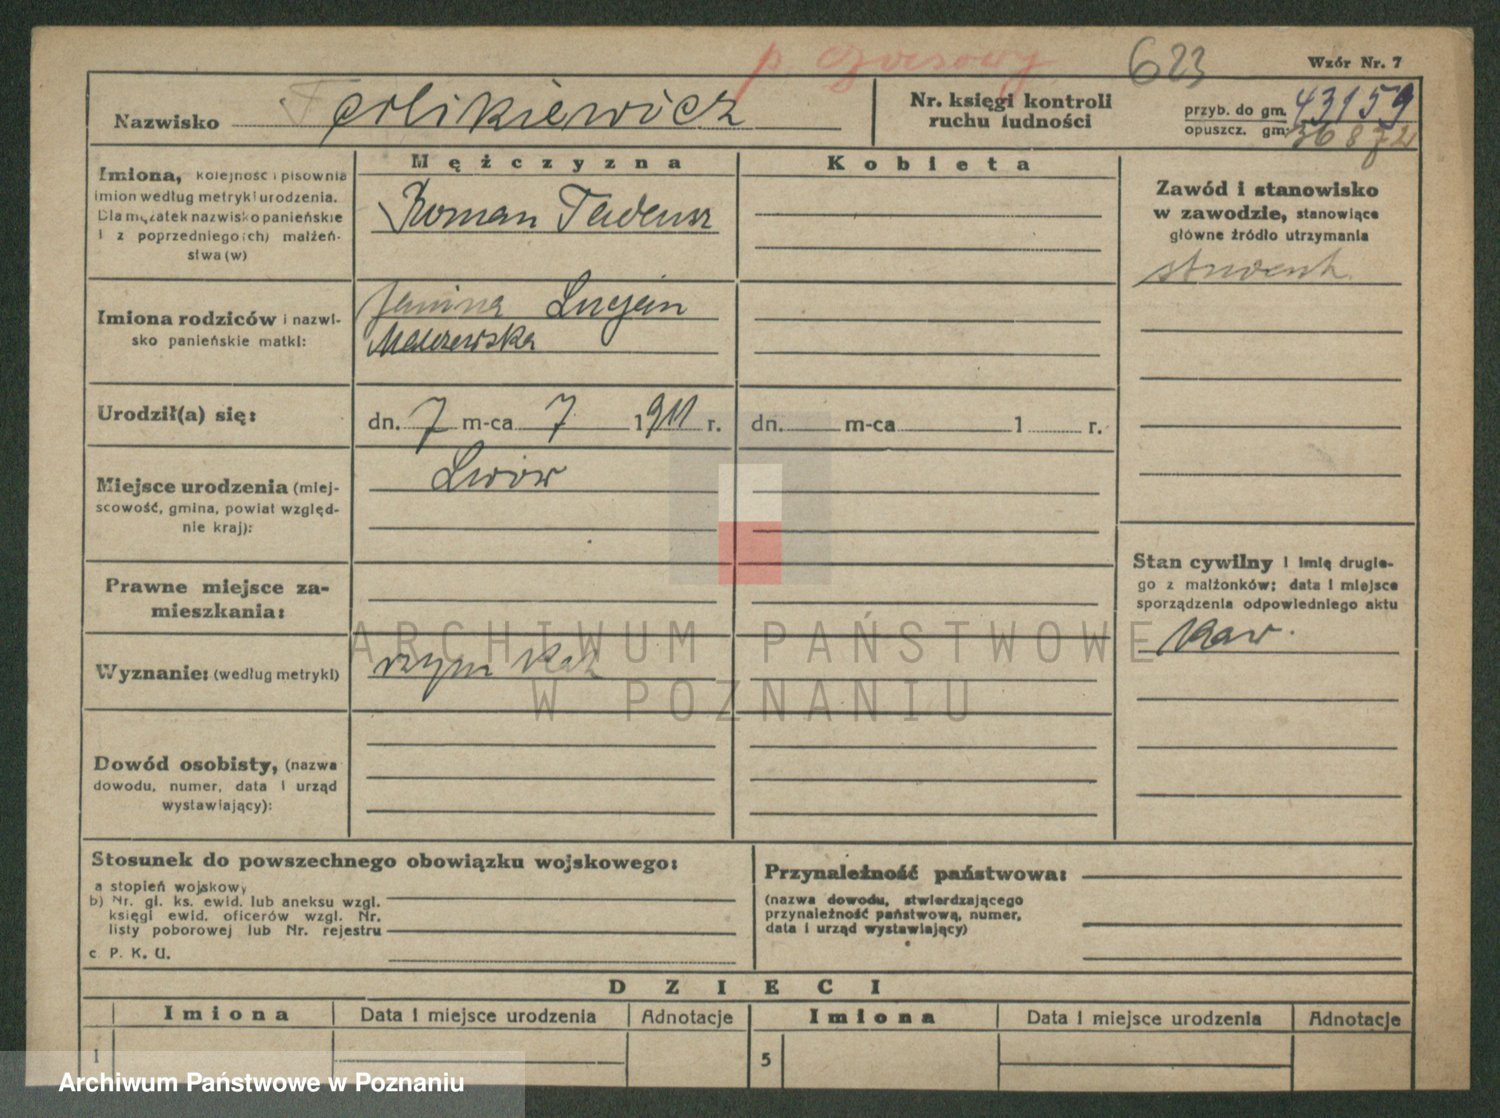 p. czasowy 623
Wzór Nr. 7
Nazwisko
Nr. księgi kontroli
ruchu ludności
przyb. do gm. 43159
opuszcz. gm: 36872
Mężczyzna
Kobieta
Imiona, kolejność i pisownia
imion według metryki urodzenia.
Dla mężatek nazwisko panieńskie
i z poprzedniego(ch) małżeń-
stwa (w)
Roman Tadeusz
Zawód i stanowisko
w zawodzie, stanowiące
główne źródło utrzymania
student.
Imiona rodziców i nazwi-
sko panieńskie matki:
Janina Lucjan
Malczewska
Urodził(a) się:
dn. 7 m-ca 7 1911 r.
dn. m-ca 1 r.
Miejsce urodzenia (miej-
scowość, gmina, powiat względ-
nie kraj):
Lwów
Stan cywilny i imię drugie-
go z małżonków; data i miejsce
sporządzenia odpowiedniego aktu
kaw.
Prawne miejsce za-
mieszkania:
Wyznanie: (według metryki)
rzym kat
ARCHIWUM PAŃSTWOWE
W POZNANIU
Dowód osobisty, (nazwa
dowodu, numer, data i urząd
wystawiający):
Stosunek do powszechnego obowiązku wojskowego:
a stopień wojskowy
b) Nr. gl. ks. ewid. lub aneksu wzgl.
księgi ewid. oficerów wzgl. Nr.
listy poborowej lub Nr. rejestru
c P. K. U.
Przynależność państwowa:
(nazwa dowodu, stwierdzającego
przynależność państwową, numer,
data i urząd wystawiający)
DZIECI
Imiona Data i miejsce urodzenia Adnotacje
Imiona Data i miejsce urodzenia Adnotacje
1
5
Archiwum Państwowe w Poznaniu